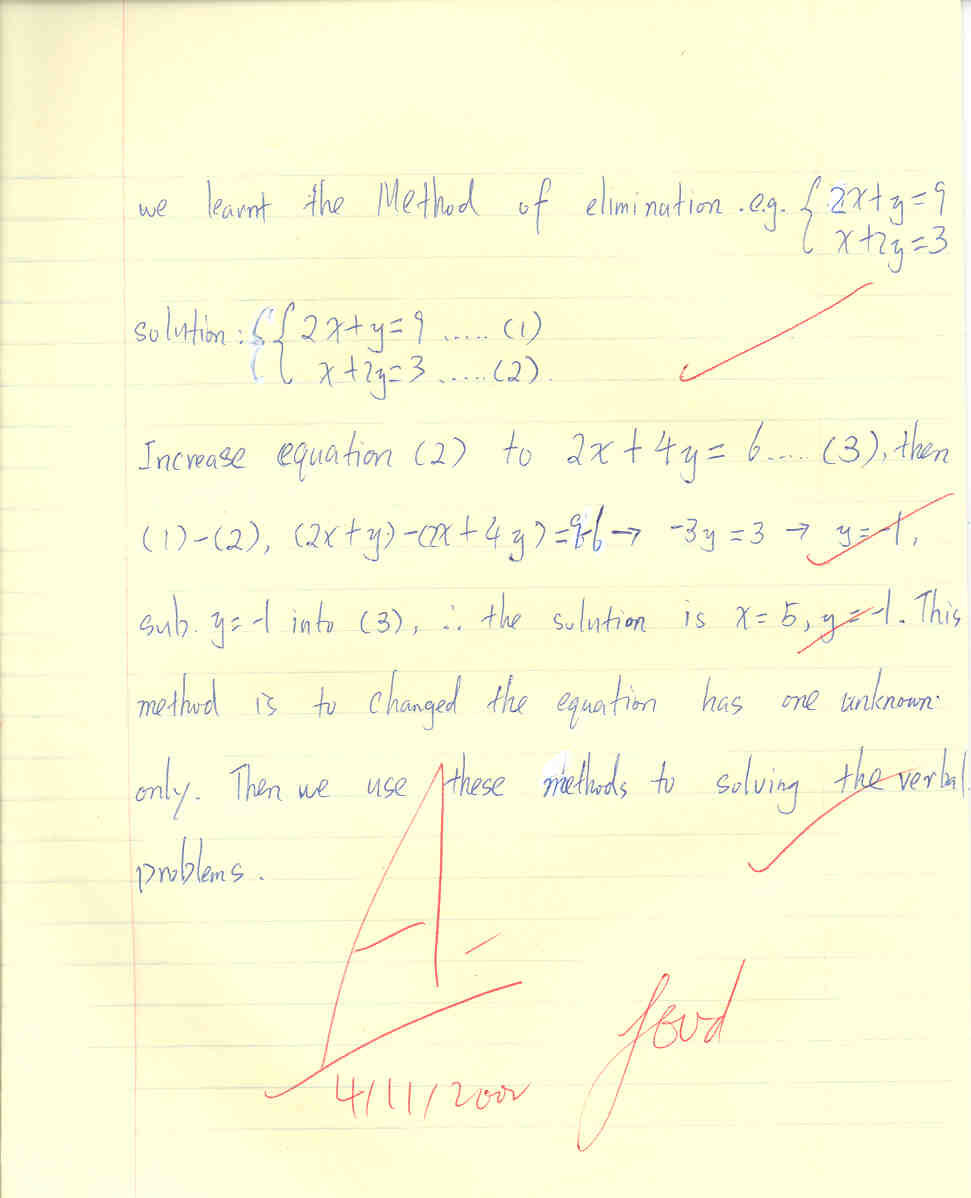 we learnt the Method of elimination. e.g. { 2x+y=9
x+2y=3
solution: { { 2x+y=9 ..... (1)
x+2y=3 ..... (2).
Increase equation (2) to 2x+4y=6.... (3), then
(1)-(2), (2x+y)-(2x+4y)=9-6→ -3y=3 → y=-1,
sub. y=-1 into (3), ∴ the solution is x=5, y=-1. This
method is to changed the equation has one unknown
only. Then we use these methods to solving the verbal
problems.
A-
4/11/2002
Good